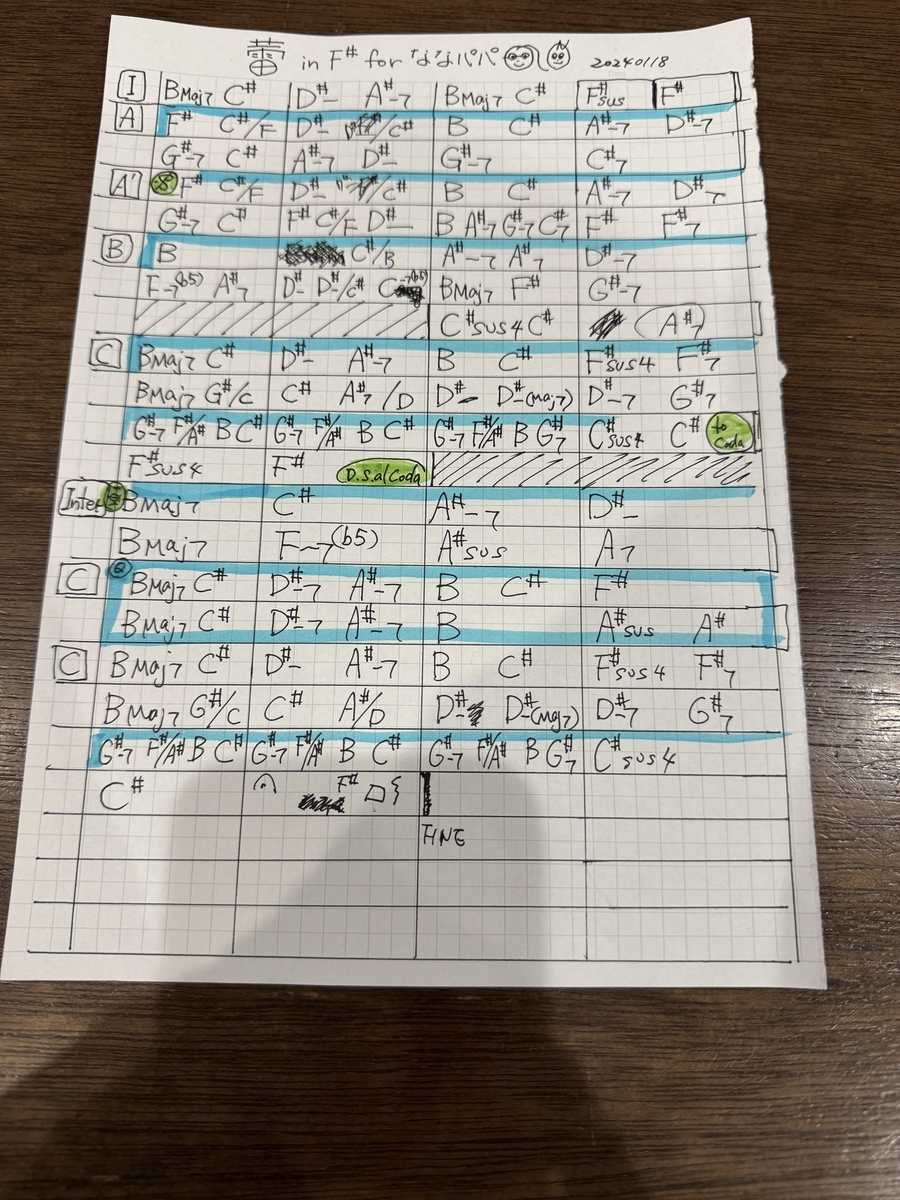 蕾 in F# for ななパパ 20240118
I BMaj7 C# D#- A#-7 BMaj7 C# F#sus F#
A F# C#/F D#- /C# B C# A#-7 D#-7
G#-7 C# A#-7 D#- G#-7 C#7
A' F# C#/F D#- /C# B C# A#-7 D#-7
G#-7 C# F# C#/F D#- B A#-7 G#-7 C#7 F# F#7
B B C#/B A#-7 A#7 D#-7
F-7(b5) A#7 D#- D#-/C# C-7(b5) BMaj7 F# G#-7
C#sus4 C# A#7
C BMaj7 C# D#- A#-7 B C# F#sus4 F#7
BMaj7 G#/C C# A#7/D D#- D#-(Maj7) D#-7 G#7
G#-7 F#/A# B C# G#-7 F#/A# B C# G#-7 F#/A# B G#7 C#sus4 C# to Coda
F#sus4 F# D.S.al Coda
Inter BMaj7 C# A#-7 D#-
BMaj7 F-7(b5) A#sus A7
C BMaj7 C# D#-7 A#-7 B C# F#
BMaj7 C# D#-7 A#-7 B A#sus A#
C BMaj7 C# D#- A#-7 B C# F#sus4 F#7
BMaj7 G#/C C# A#/D D#- D#-(Maj7) D#-7 G#7
G#-7 F#/A# B C# G#-7 F#/A# B C# G#-7 F#/A# B G#7 C#sus4
C# F#
FINE